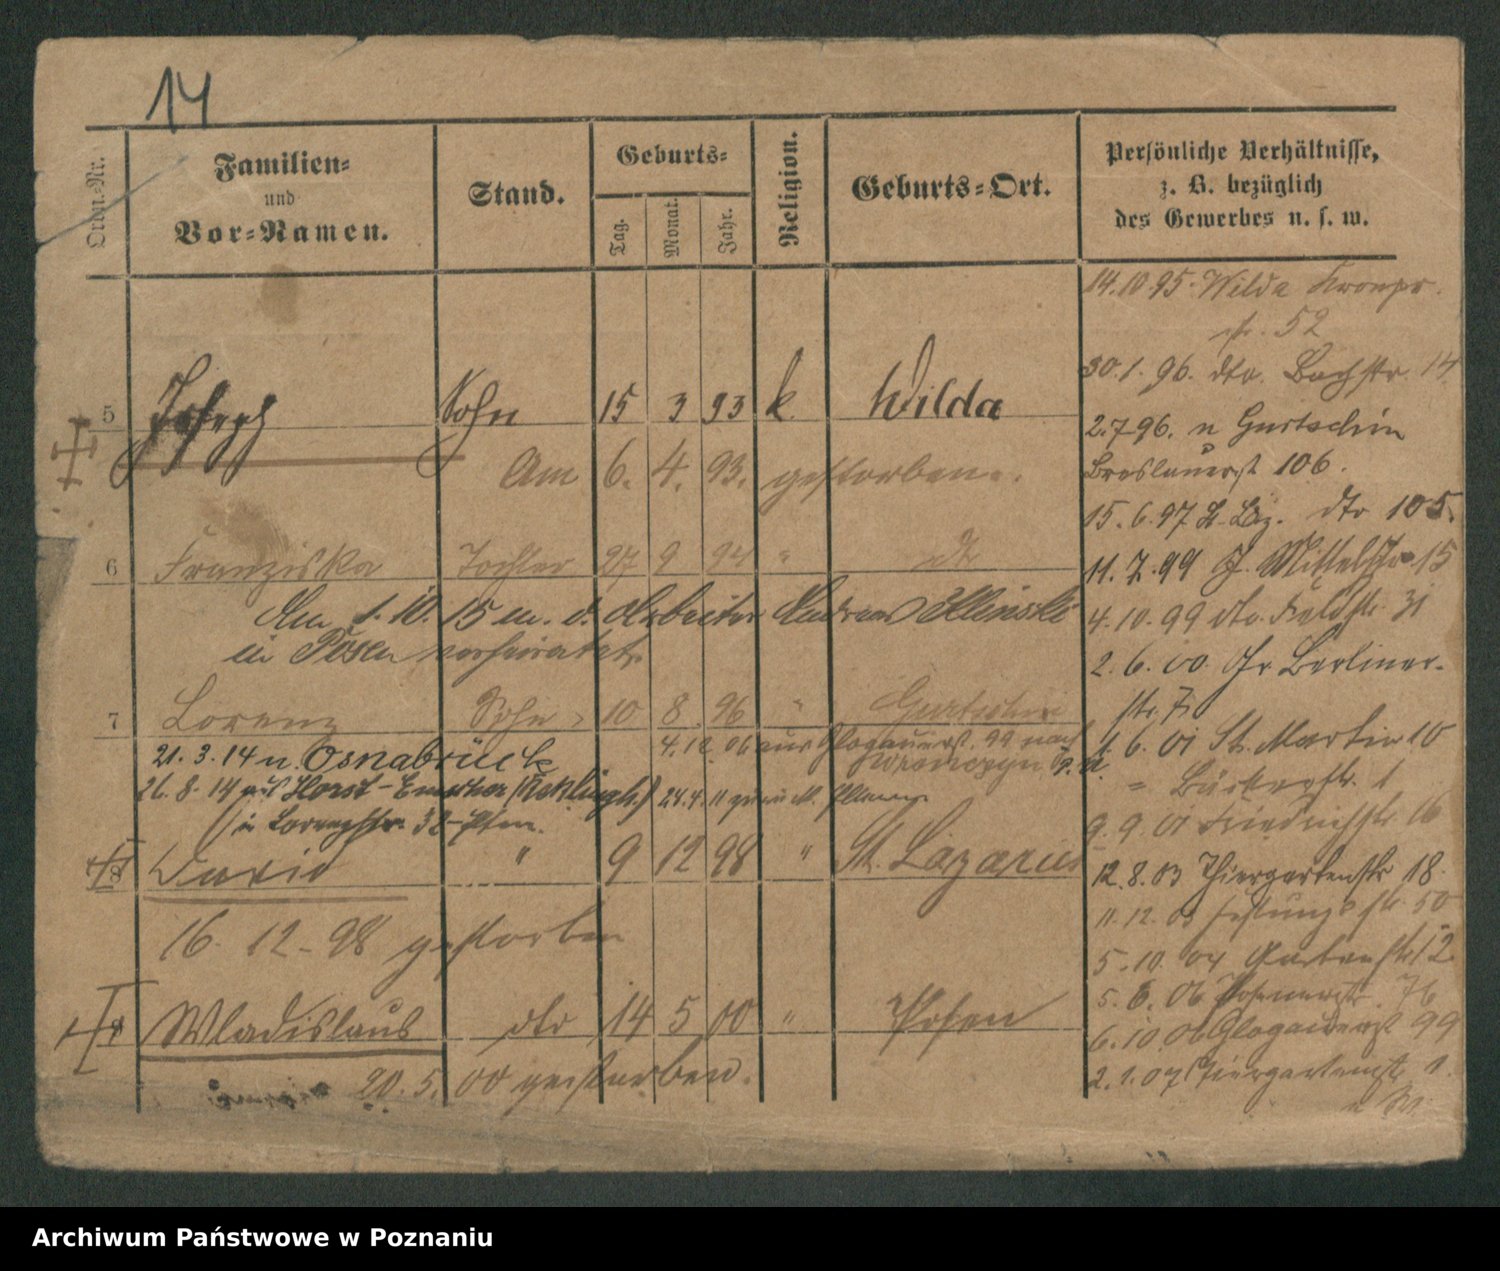 14
Ordn.-Nr.
Familien-
und
Vor-Namen.
Stand.
Geburts-
Tag.
Monat.
Jahr.
Religion.
Geburts-Ort.
Persönliche Verhältnisse,
z. B. bezüglich
des Gewerbes u. s. w.
5 Joseph Sohn 15 3 93 k Wilda
Am 6. 4. 93. gestorben.
6 Franziska Tochter 27 9 94 "
Am 1. 10. 15 m. d. Arbeiter Andreas
in Posen verheiratet.
7 Lorenz Sohn 10 8 96 " Gurtschin
4. 12. 06 aus Glogauerst. 99 nach
21. 3. 14 n. Osnabrück
26. 8. 14 aus Horst-Emscher
in Lorenzstr. 38
8 " 9 12 98 " St. Lazarus
16. 12. 98 gestorben
Wladislaus dto 14 5 00 " Posen
20. 5. 00 gestorben.
14. 10 95. Wilda Kronpr.
str. 52
30. 1. 96. dto. Bachstr. 14
2. 7 96. n Gurtschin
Breslauerst 106.
15. 6. 97 St. Laz. dto 105.
11. 7. 99 Mittelstr 15
4. 10. 99 dto. Feldstr. 31
2. 6. 00. Berliner-
str. 7
1. 6. 01 St. Martin 10
" Bäckerstr. 1
9. 9. 01 Friedrichstr. 16
12. 8. 03 Thiergartenstr 18.
11. 12. 03 Festungsstr 50
5. 10. 04 Gartenstr 12.
5. 6. 06 Posenerstr. 76
6. 10. 06 Glogauerst 99
2. 1. 07 Thiergartenstr 1.
Archiwum Państwowe w Poznaniu